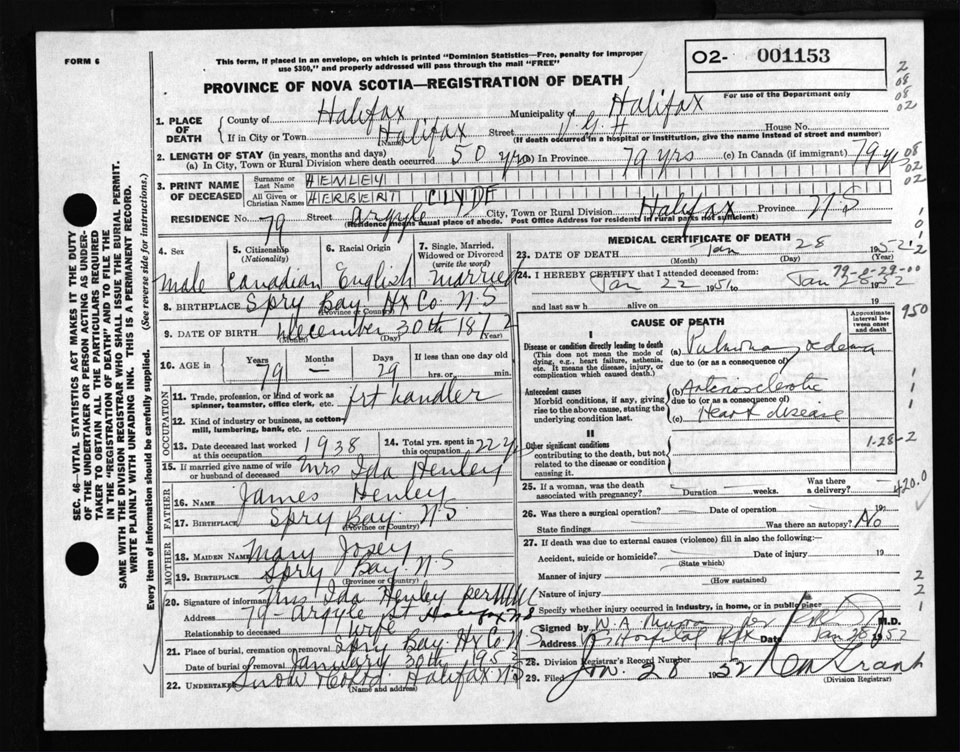 FORM 6
This form, if placed in an envelope, on which is printed "Dominion Statistics—Free, penalty for improper
use $300," and properly addressed will pass through the mail "FREE"
O2- 001153
For use of the Department only
PROVINCE OF NOVA SCOTIA—REGISTRATION OF DEATH
1. PLACE OF DEATH { County of Halifax Municipality of Halifax
If in City or Town Halifax (Name) Street V G H House No.
(If death occurred in a hospital or institution, give the name instead of street and number)
2. LENGTH OF STAY (in years, months and days)
(a) In City, Town or Rural Division where death occurred 50 yrs (b) In Province 79 yrs (c) In Canada (if immigrant) 79 yrs
3. PRINT NAME OF DECEASED { Surname or Last Name HENLEY
All Given or Christian Names HERBERT CLYDE
RESIDENCE No. 79 Street Argyle City, Town or Rural Division Halifax Province N.S
(Residence means usual place of abode. Post Office Address for residents in rural parts not sufficient)
4. Sex Male
5. Citizenship (Nationality) Canadian
6. Racial Origin English
7. Single, Married, Widowed or Divorced (write the word) Married
8. BIRTHPLACE Spry Bay Hx Co N.S
(Province or Country)
9. DATE OF BIRTH December 30th 1872
(Month) (Day) (Year)
16. AGE in Years 79 Months — Days 29 If less than one day old
hrs. or min.
OCCUPATION
11. Trade, profession, or kind of work as spinner, teamster, office clerk, etc. frt handler
12. Kind of industry or business, as cotton mill, lumbering, bank, etc.
13. Date deceased last worked at this occupation 1938
14. Total yrs. spent in this occupation 22 y
15. If married give name of wife or husband of deceased Mrs Ida Henley
FATHER
16. NAME James Henley
17. BIRTHPLACE Spry Bay. N.S.
(Province or Country)
MOTHER
18. MAIDEN NAME Mary Josey
19. BIRTHPLACE Spry Bay. N.S
(Province or Country)
20. Signature of informant Mrs Ida Henley per
Address 79- Argyle St Halifax N S
Relationship to deceased Wife
21. Place of burial, cremation or removal Spry Bay. Hx Co N.S
Date of burial or removal January 30th 1952
22. Undertaker Snow & Co Ltd. Halifax N.S
(Name and address)
MEDICAL CERTIFICATE OF DEATH
23. DATE OF DEATH Jan 28 1952
(Month) (Day) (Year)
24. I HEREBY CERTIFY that I attended deceased from:
Jan 22 1951 to Jan 28 52 19
79-0-29-00
and last saw h alive on 19
CAUSE OF DEATH
Approximate interval between onset and death
950
I
Disease or condition directly leading to death
(This does not mean the mode of dying, e.g., heart failure, asthenia, etc. It means the disease, injury, or complication which caused death.)
(a) Pulmonary edema
due to (or as a consequence of)
Antecedent causes
Morbid conditions, if any, giving rise to the above cause, stating the underlying condition last.
(b) Arteriosclerotic
due to (or as a consequence of)
(c) Heart disease
II
Other significant conditions
contributing to the death, but not related to the disease or condition causing it.
1-28-2
25. If a woman, was the death associated with pregnancy? Duration weeks. Was there a delivery?
420.0
26. Was there a surgical operation? Date of operation 19
State findings Was there an autopsy? No
27. If death was due to external causes (violence) fill in also the following:
Accident, suicide or homicide? Date of injury 19
(State which)
Manner of injury
(How sustained)
Nature of injury
Specify whether injury occurred in industry, in home, or in public place
Signed by W.A. for M.D.
Address V. G. Hospital Hfx Date Jan 28 1952
28. Division Registrar's Record Number
29. Filed Jan. 28 1952
(Division Registrar)
SEC. 46—VITAL STATISTICS ACT MAKES IT THE DUTY
OF THE UNDERTAKER OR PERSON ACTING AS UNDER-
TAKER TO OBTAIN ALL THE PARTICULARS REQUIRED
IN THE "REGISTRATION OF DEATH" AND TO FILE THE
SAME WITH THE DIVISION REGISTRAR WHO SHALL ISSUE THE BURIAL PERMIT.
WRITE PLAINLY WITH UNFADING INK. THIS IS A PERMANENT RECORD.
Every item of information should be carefully supplied. (See reverse side for instructions.)